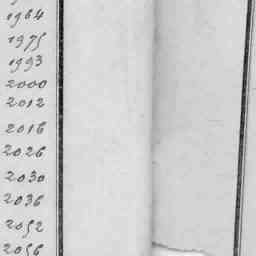 1964
1975
1993
2000
2012
2016
2026
2030
2036
2052
2056